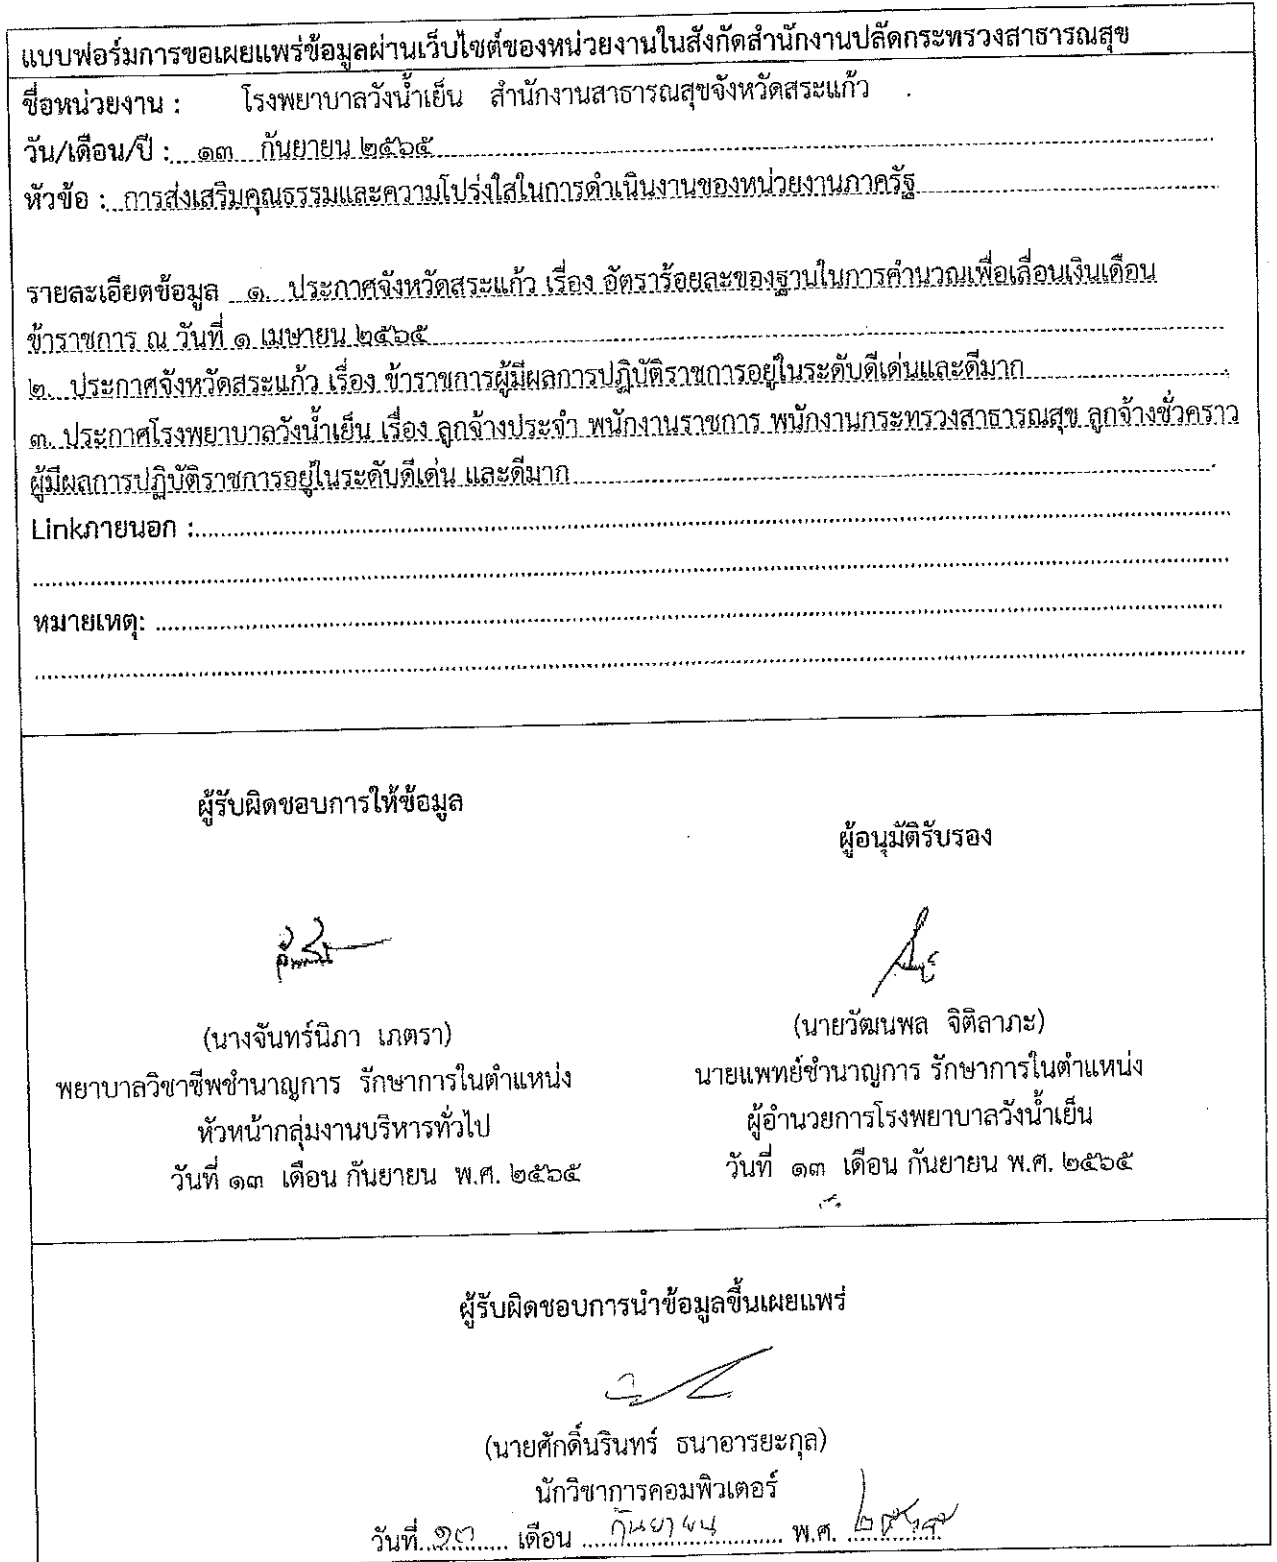 แบบฟอร์มการขอเผยแพร่ข้อมูลผ่านเว็บไซต์ของหน่วยงานในสังกัดสำนักงานปลัดกระทรวงสาธารณสุข
ชื่อหน่วยงาน : โรงพยาบาลวังน้ำเย็น สำนักงานสาธารณสุขจังหวัดสระแก้ว
วัน/เดือน/ปี : ๑๓ กันยายน ๒๕๖๕
หัวข้อ : การส่งเสริมคุณธรรมและความโปร่งใสในการดำเนินงานของหน่วยงานภาครัฐ
รายละเอียดข้อมูล ๑. ประกาศจังหวัดสระแก้ว เรื่อง อัตราร้อยละของฐานในการคำนวณเพื่อเลื่อนเงินเดือน
ข้าราชการ ณ วันที่ ๑ เมษายน ๒๕๖๕
๒. ประกาศจังหวัดสระแก้ว เรื่อง ข้าราชการผู้มีผลการปฏิบัติราชการอยู่ในระดับดีเด่นและดีมาก
๓. ประกาศโรงพยาบาลวังน้ำเย็น เรื่อง ลูกจ้างประจำ พนักงานราชการ พนักงานกระทรวงสาธารณสุข ลูกจ้างชั่วคราว
ผู้มีผลการปฏิบัติราชการอยู่ในระดับดีเด่น และดีมาก
Linkภายนอก :
หมายเหตุ:
ผู้รับผิดชอบการให้ข้อมูล
ผู้อนุมัติรับรอง
(นางจันทร์นิภา เภตรา)
(นายวัฒนพล จิติลาภะ)
พยาบาลวิชาชีพชำนาญการ รักษาการในตำแหน่ง
นายแพทย์ชำนาญการ รักษาการในตำแหน่ง
หัวหน้ากลุ่มงานบริหารทั่วไป
ผู้อำนวยการโรงพยาบาลวังน้ำเย็น
วันที่ ๑๓ เดือน กันยายน พ.ศ. ๒๕๖๕
วันที่ ๑๓ เดือน กันยายน พ.ศ. ๒๕๖๕
ผู้รับผิดชอบการนำข้อมูลขึ้นเผยแพร่
(นายศักดิ์นรินทร์ ธนาอารยะกุล)
นักวิชาการคอมพิวเตอร์
วันที่ ๑๓ เดือน กันยายน พ.ศ. ๒๕๖๕